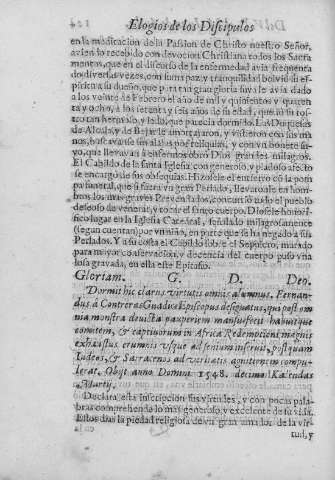 Elogios de los Discipulos
en la meditacion de la Passion de Christo nuestro Señor,
avien lo recebido con devocion Christiana todos los Sacra
mentos, que en el discurso de la enfermedad avia frequenta
do diversas vezes, con suma paz, y tranquilidad bolvió su es-
piritu a su dueño, que para tan gran gloria suya le avia dado
a los veinte de Febrero el año de mil y quinientos y quaren
ta y ocho, a los setenta y seis años de su edad, que
tan hermoso, y ledo, que parecia dormido. La Duquesa
de Alcalá, y de Bejar le amortajaron, y vistieron con sus ma
nos, y con voto su-
yo, que llevavan a enfermos obro Dios grandes milagros.
El Cabildo de la santa Iglesia con generoso, y piadoso afecto
se encargó de sus obsequias. Hizosele el entierro có la pom
pa funeral, que si fuera un gran Perlado, llevaronle en hom-
bros los mas graves Prevendados, concurrió todo el pueblo
deseoso de venerar, y tocar el santo cuerpo. Diosele honori-
fico lugar en la Iglesia Catedral, señalado milagrosamente
(segun cuentan) por un niño, en parte que se ha negado a sus
Perlados. Y a su costa el Cabildo sobre el Sepulcro, marado
para mayor conservacion, y decencia del cuerpo puso una
losa gravada, en ella este Epitafio.
Gloriam. G. D. Deo.
Dormit hic clarus virtutis omnis alumnus, Fernan-
dus á Contreras Guadix Episcopus designatus, qui post om
nia monstra devicta pauperiem mansuescit habuitque
comitem, & captivorum in Africa Redemptioni magnis
exhaustus erumnis usque ad senium inservit, postquam
Iudeos, & Sarracenos ad veritatis agnitionem compu-
lerat. Obijt anno Domini 1548. decimo Kalendas
Martij.
Declara esta inscripcion sus virtudes, y con pocas pala
bras comprehende lo mas generoso, y excelente de su vida.
Estos dias la piedad religiosa de un gran amador de la vir-
tud, y